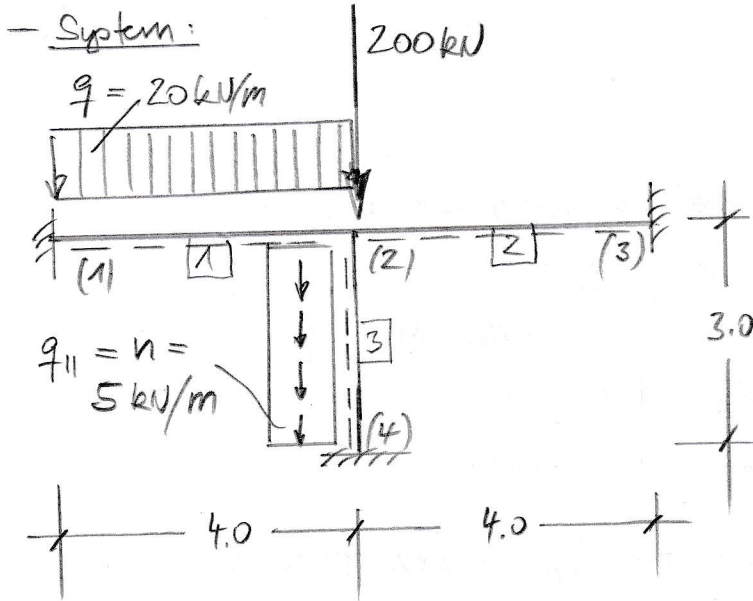 - System:
200kN
q = 20kN/m
(1) 1 (2) 2 (3)
q|| = n =
5 kN/m
3
3.0
(4)
4.0 4.0